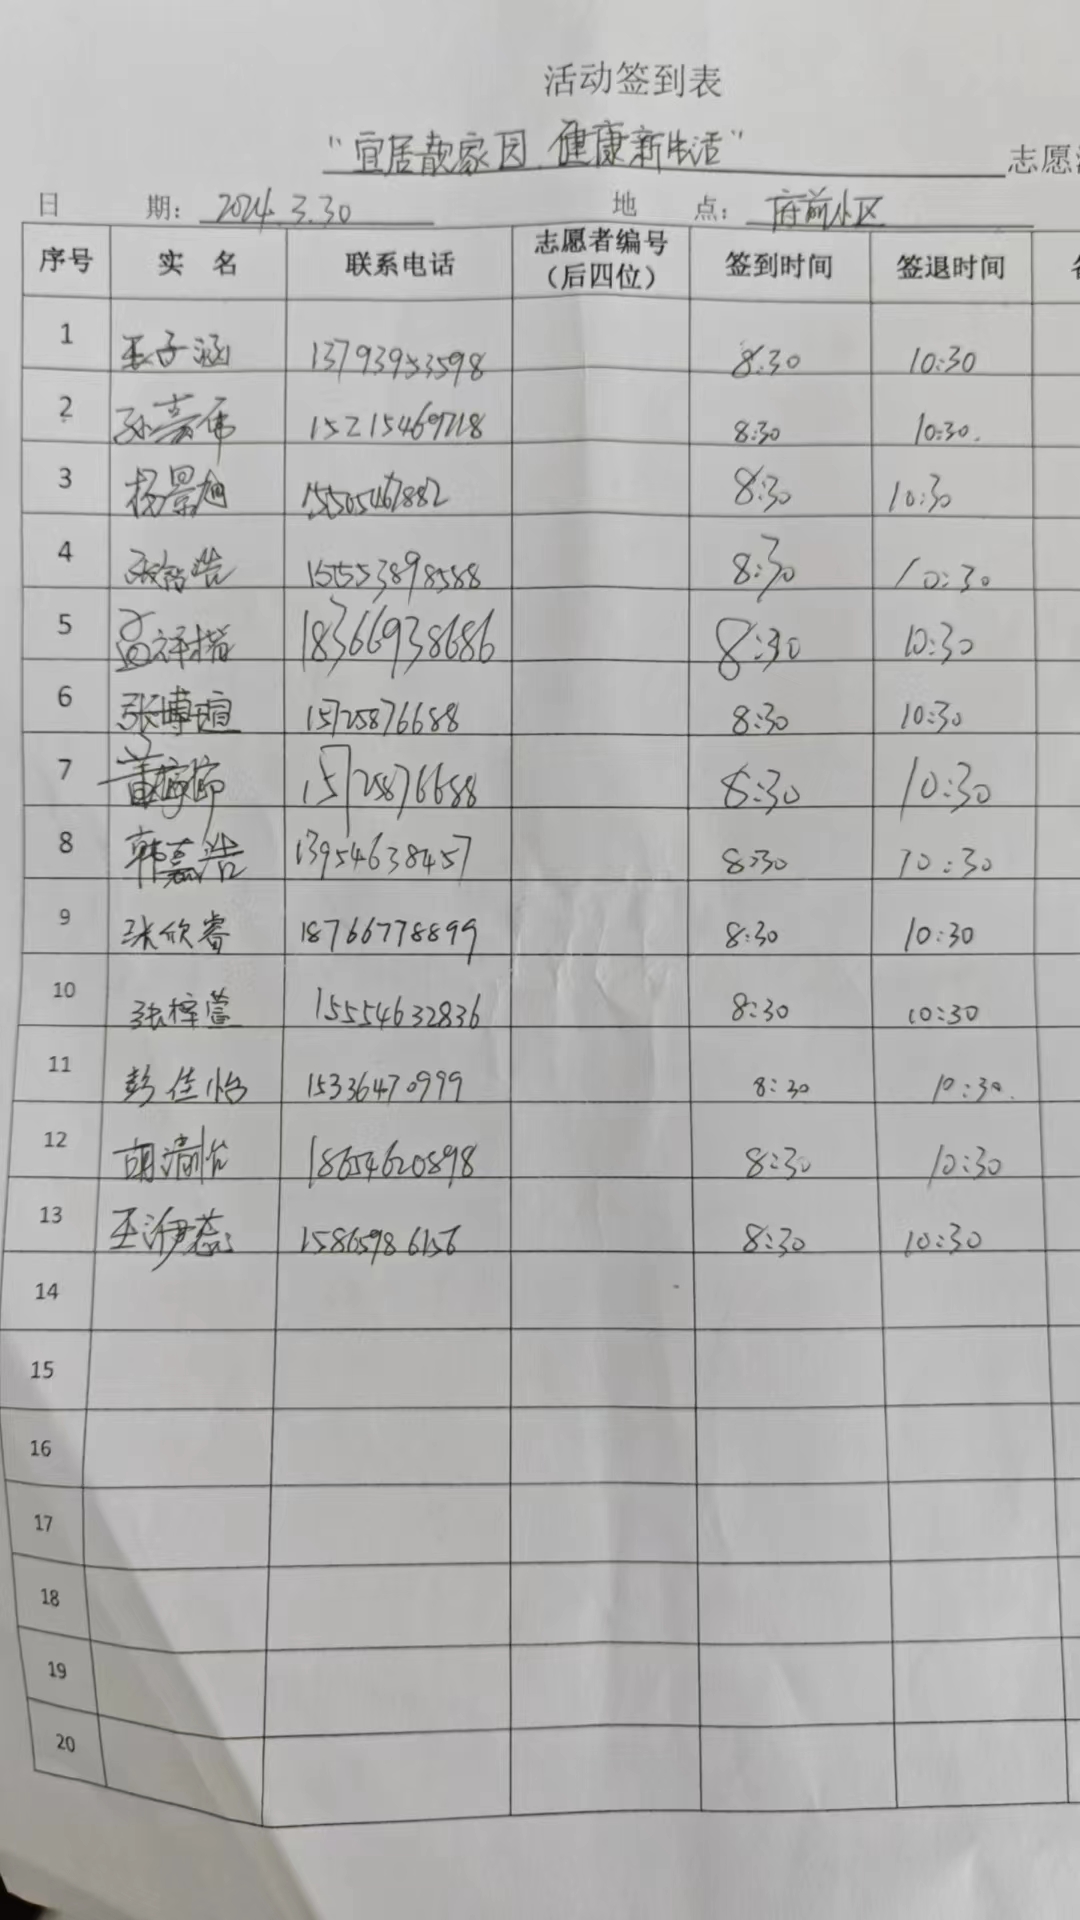 活动签到表
"宜居靓家园 健康新生活" 志愿
日 期: 2024.3.30 地 点: 府前小区
序号 实 名 联系电话 志愿者编号(后四位) 签到时间 签退时间
1 王子涵 13793953598 8:30 10:30
2 孙嘉伟 15215469718 8:30 10:30.
3 杨景旭 15505467882 8:30 10:30
4 张智浩 15553898588 8:30 10:30
5 孟祥楷 18366938686 8:30 10:30
6 张博瑄 15725876688 8:30 10:30
7 15725876688 8:30 10:30
8 韩嘉浩 13954638457 8:30 10:30
9 张欣睿 18766778899 8:30 10:30
10 张梓萱 15554632836 8:30 10:30
11 彭佳怡 15336470999 8:30 10:30.
12 18654620898 8:30 10:30
13 王沂蕊 15865986156 8:30 10:30
14
15
16
17
18
19
20